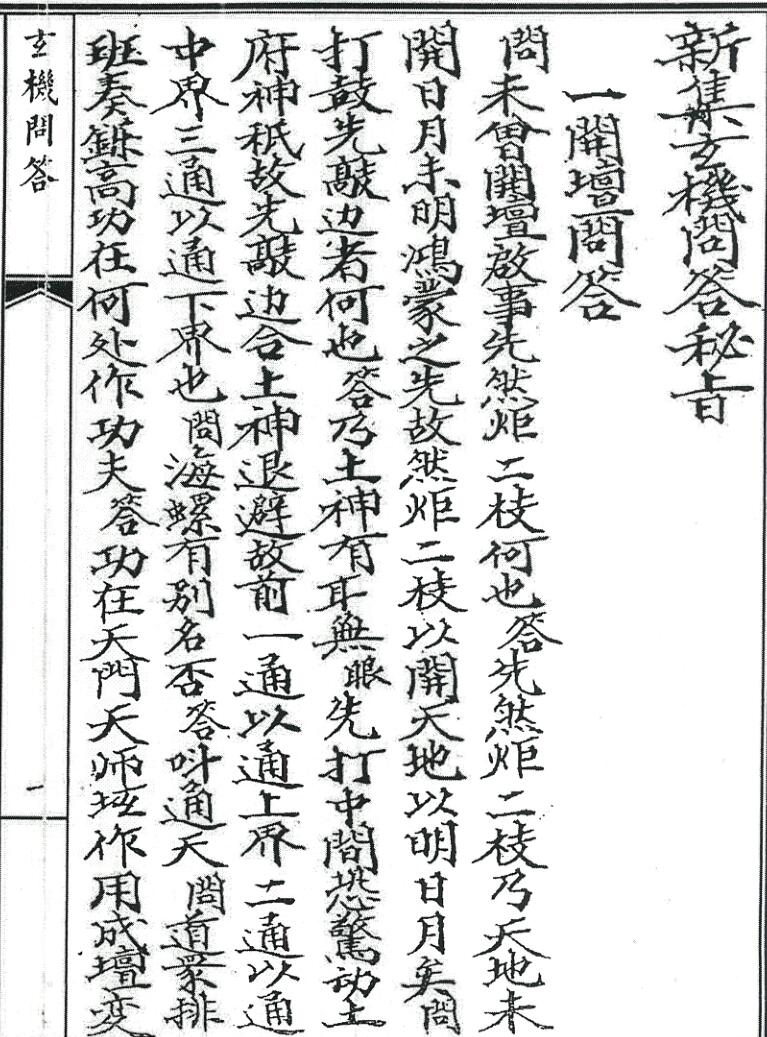 新集玄機問答秘旨
一開壇問答
問未曾開壇啟事先然炬二枝何也答先然炬二枝乃天地未
開日月未明鴻蒙之先故然炬二枝以開天地以明日月矣問
打鼓先敲边者何也答乃土神有耳無眼先打中間恐驚动土
府神秖故先敲边合土神退避故前一通以通上界二通以通
中界三通以通下界也問海螺有别名否答叫通天問道眾排
班奏高功在何处作功夫答功在天門天师班作用成壇变
玄機問答
一